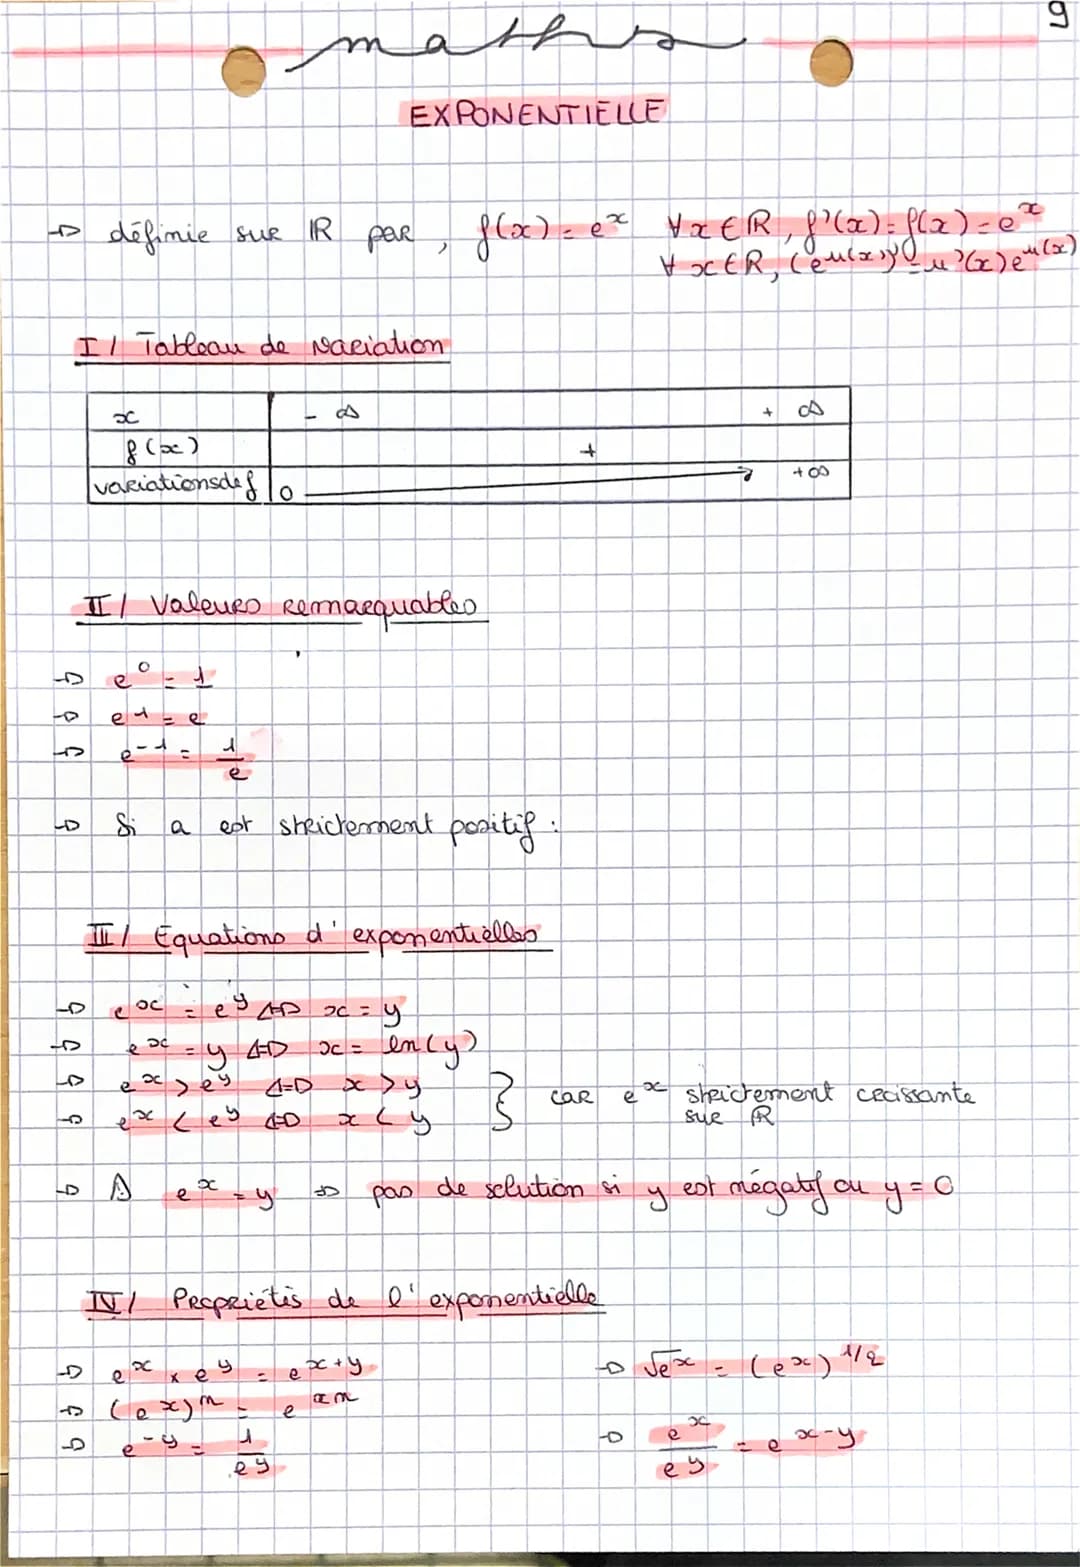 maths
9
EXPONENTIELLE
→ définie sur ℝ par, f(x) = e^x ∀x ∈ ℝ, f'(x) = f(x) = e^x
∀x ∈ ℝ, (e^{u(x)})' = u'(x)e^{u(x)}
I/ Tableau de variation
x -∞ +∞
f(x) +
variations de f 0 → +∞
II/ Valeurs remarquables
→ e^0 = 1
→ e^1 = e
→ e^{-1} = 1/e
→ Si a est strictement positif :
III/ Equations d'exponentielles
→ e^x = e^y ⇔ x = y
→ e^x = y ⇔ x = ln(y)
→ e^x > e^y ⇔ x > y
→ e^x < e^y ⇔ x < y } car e^x strictement croissante
sur ℝ
→ ⚠ e^x = y ⇒ pas de solution si y est négatif ou y = 0
IV/ Propriétés de l'exponentielle
→ e^x × e^y = e^{x+y} → √e^x = (e^x)^{1/2}
→ (e^x)^n = e^{xn}
→ e^{-y} = 1/e^y → e^x/e^y = e^{x-y}